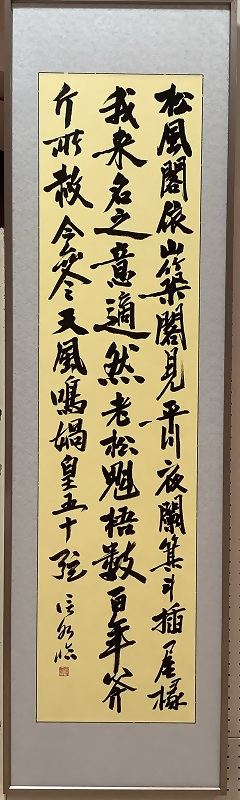 松風閣依山築閣見平川夜闌箕斗插屋椽
我来名之意適然老松魁梧数百年斧
斤所赦今参天風鳴媧皇五十弦
臨